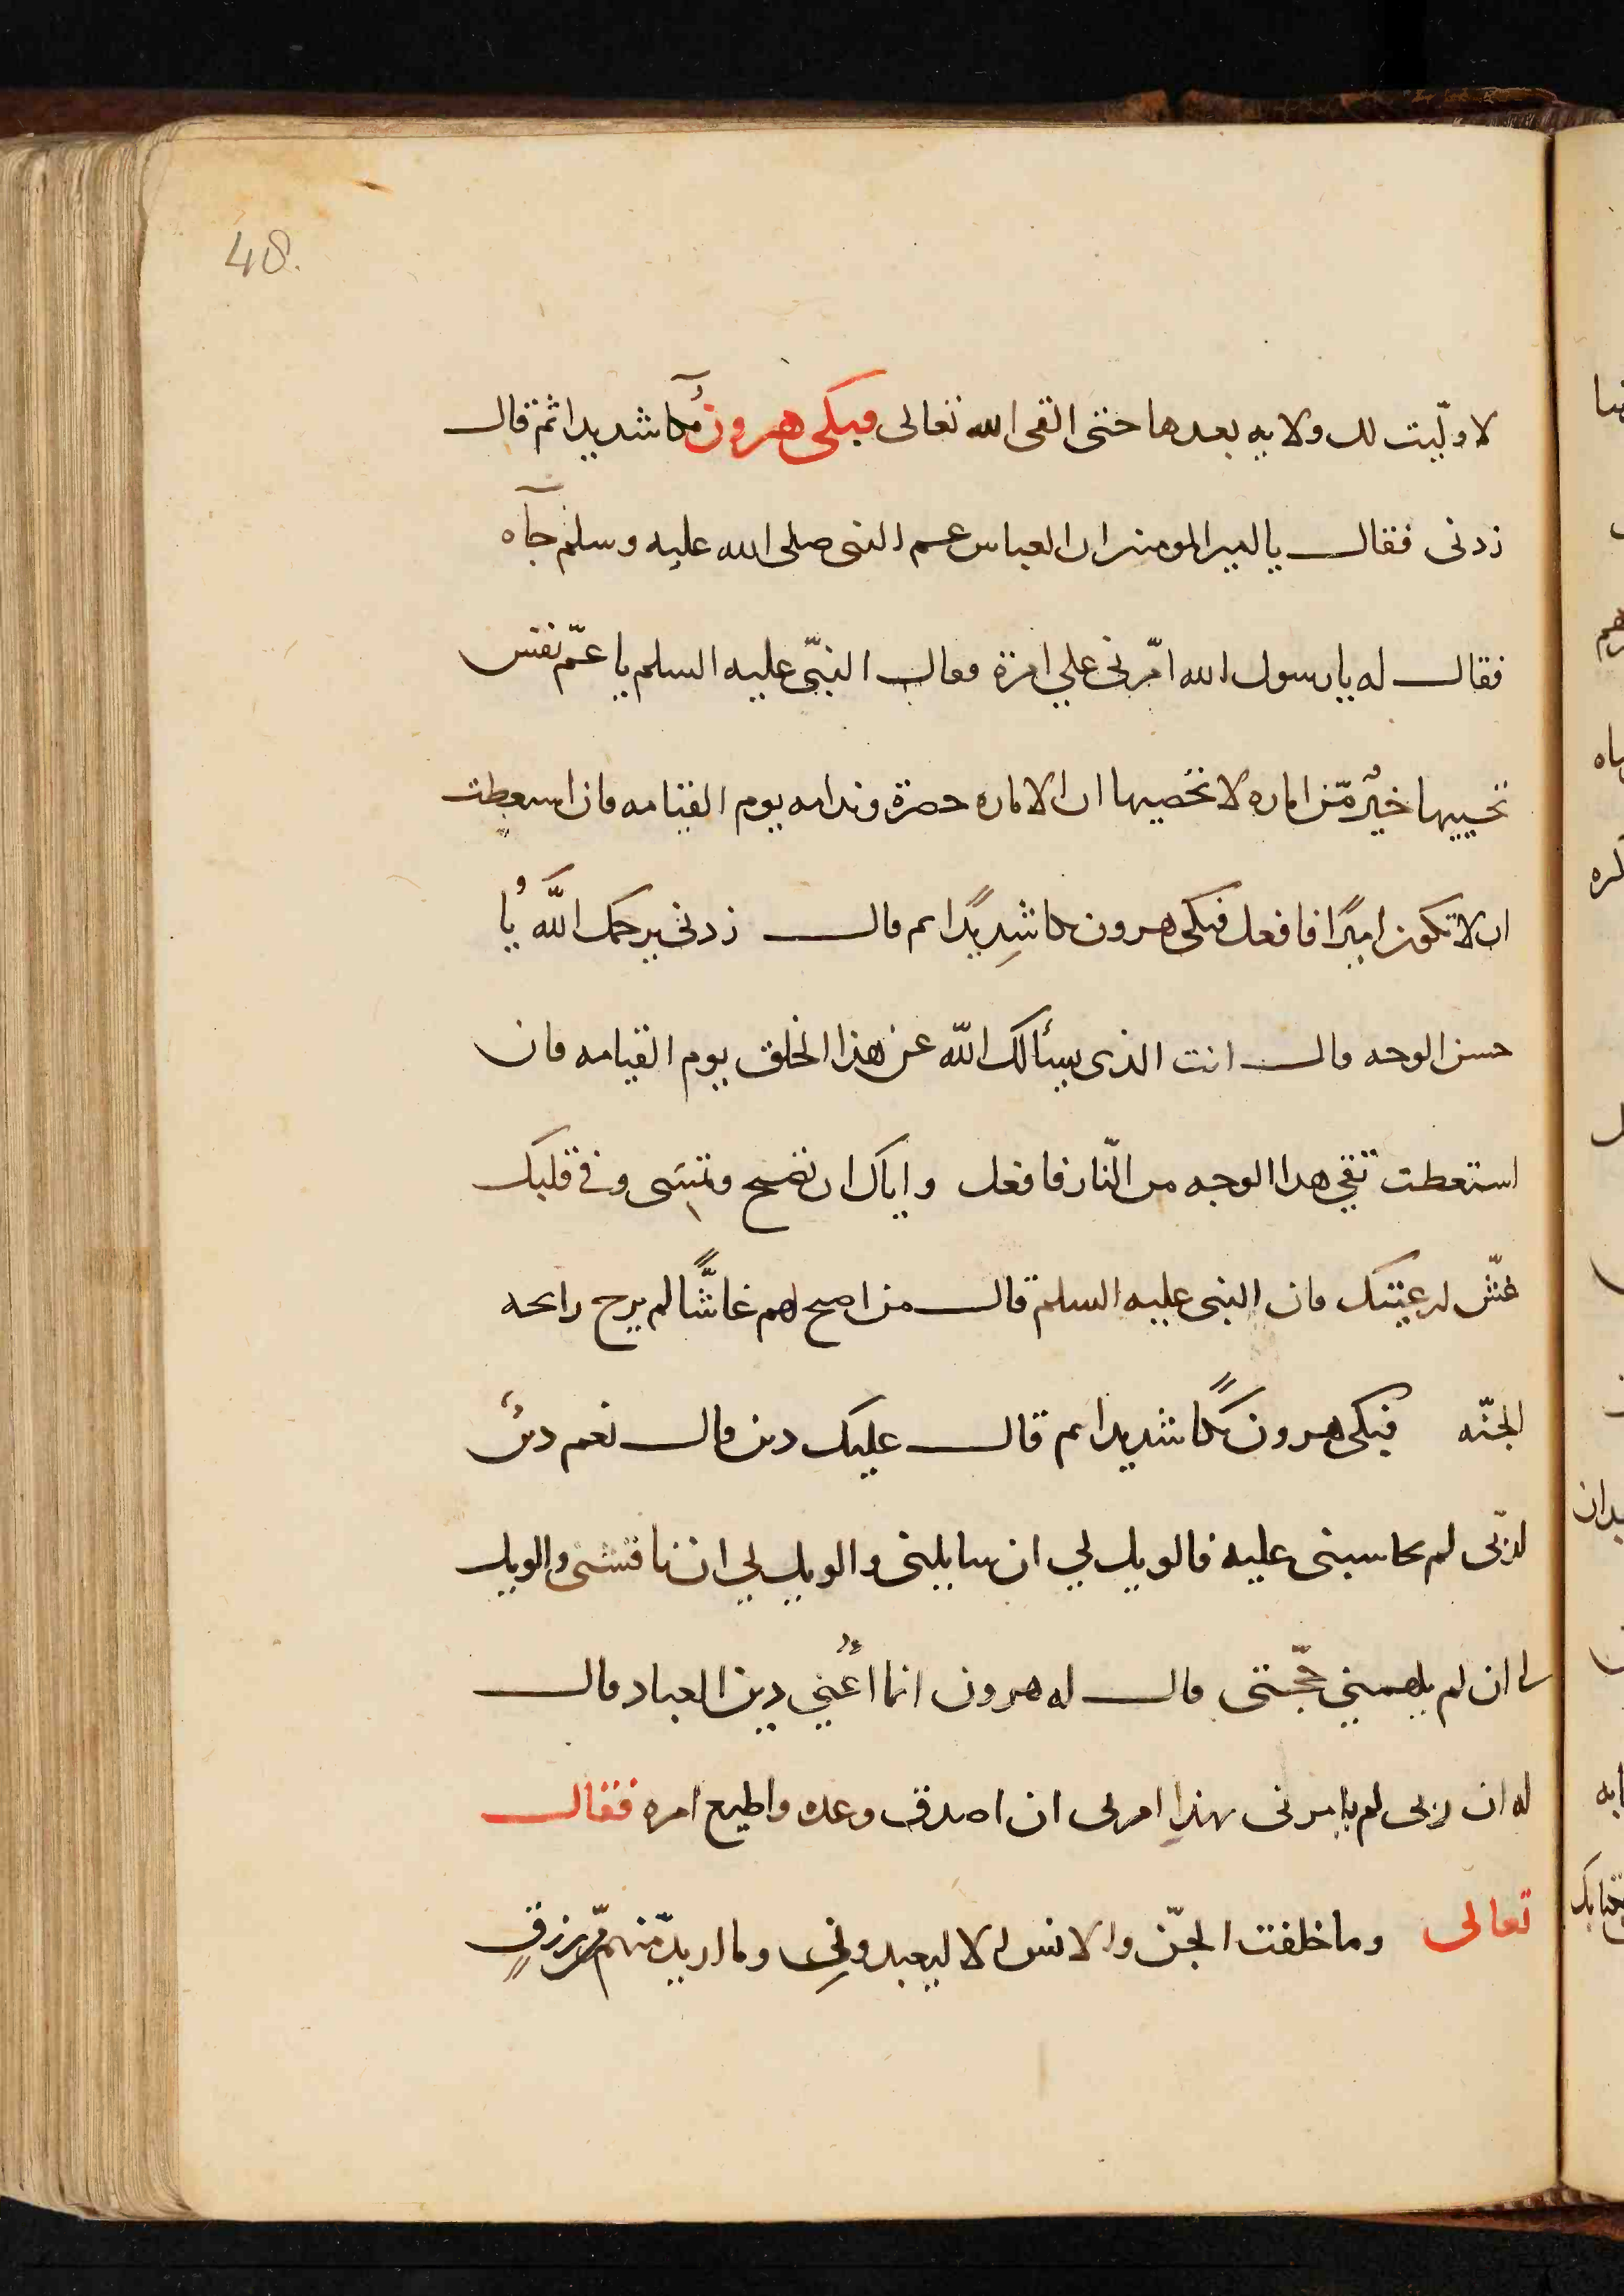 48.
لا وليت لك ولايه بعدها حتى القى الله تعالى فبكى هرون بكآ شديدا ثم قال
زدنى فقال يا امير المومنين ان العباس عم النبى صلى الله عليه وسلم جآه
فقال له يا رسول الله امّرنى على امرة فقال النبىّ عليه السلم يا عمّ نفس
تحييها خيرٌ مّن اماره لا تحصيها ان الاماره حصرة وندامه يوم القيامه فان اسعطت
ان لا تكون اميرًا فافعل فبكى هرون بكا شدِيدًا ثم قال زدنى يرحمك اللّٰه يا
حسن الوجه قال انت الذى يسألك اللّه عن هذا الخلق يوم القيامه فان
استعطت تقى هذا الوجه من النّار فافعل واياك ان تصبح وتمسَى وفى قلبك
غشّ لرعيتك فان النبى عليه السلم قال من اصبح لهم غاشًّا لم يرح رايحه
الجنّه فبكى هرون بكًا شديدا ثم قال عليك دين قال نعم دينٌ
لربّى لم يحاسبنى عليه فالويل لي ان سايلنى والويل لي ان ناقشنى والويل
لى ان لم يلهمنى حجّتى قال له هرون انما اعْني دين العباد قال
له ان ربى لم يامرنى بهذا امرنى ان اصدق وعده واطيع امره فقال
تعالى وما خلقت الجنّ والانس الا ليعبدونِى وما اريد مّنهم مّن رزقٍ